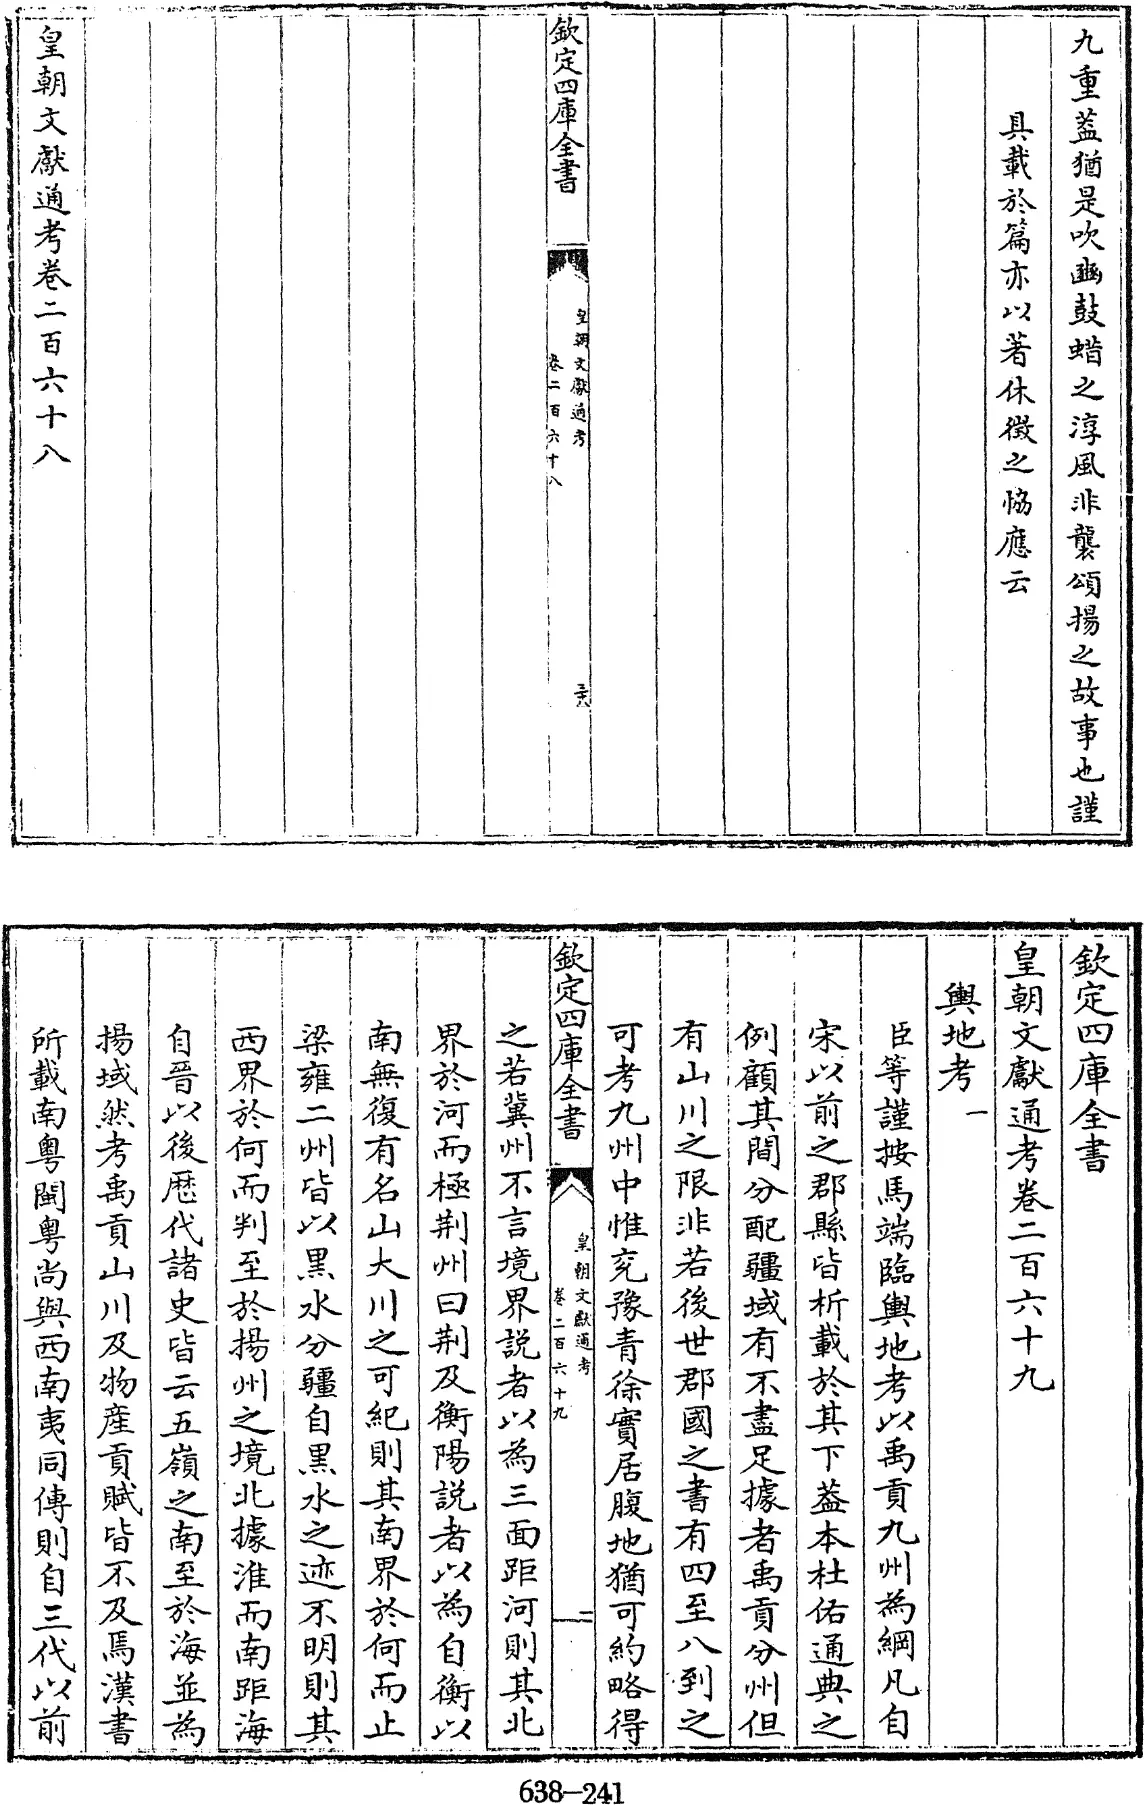 九重葢猶是吹豳鼓蜡之淳風非襲頌揚之故事也謹
具載於篇亦以著休徴之恊應云
欽定四庫全書
皇朝文獻通考
卷二百六十八
皇朝文獻通考卷二百六十八
欽定四庫全書
皇朝文獻通考卷二百六十九
輿地考一
臣等謹按馬端臨輿地考以禹貢九州為綱凡自
宋以前之郡縣皆析載於其下葢本杜佑通典之
例顧其間分配疆域有不盡足據者禹貢分州但
有山川之限非若後世郡國之書有四至八到之
可考九州中惟兖豫青徐實居腹地猶可約略得
欽定四庫全書
皇朝文獻通考
卷二百六十九
之若冀州不言境界説者以為三面距河則其北
界於河而極荆州曰荆及衡陽説者以為自衡以
南無復有名山大川之可紀則其南界於何而止
梁雍二州皆以黑水分疆自黑水之迹不明則其
西界於何而判至於揚州之境北據淮而南距海
自晉以後歴代諸史皆云五嶺之南至於海並為
揚域然考禹貢山川及物産貢賦皆不及焉漢書
所載南粤閩粤尚與西南夷同傳則自三代以前
638-241